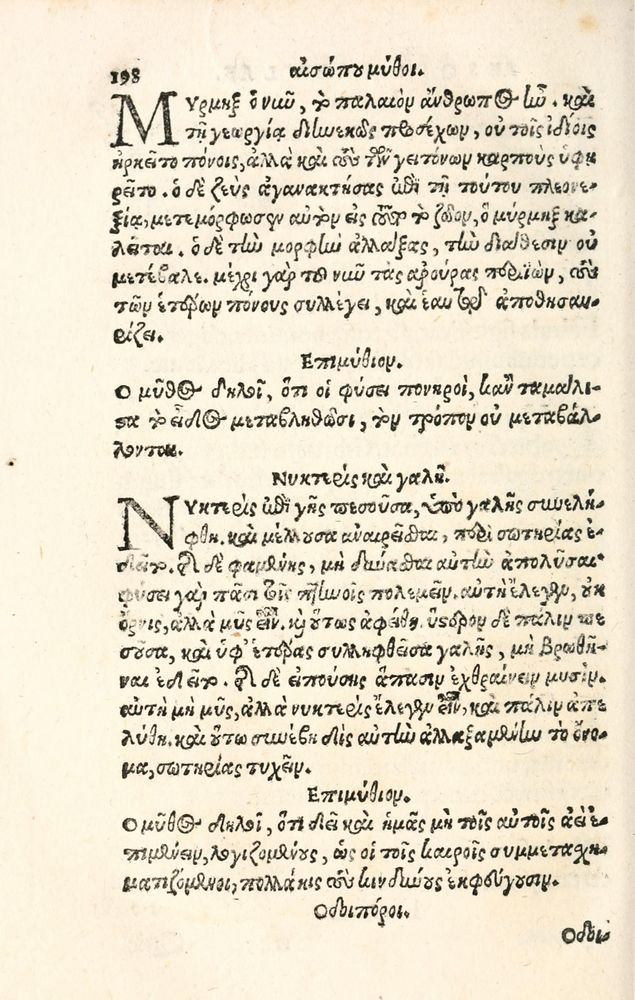 198 αἰσώπου μῦθοι.
Μύρμηξ ὁ νῦν, τὸ παλαιὸν ἄνθρωπος ἦν. καὶ
τῇ γεωργίᾳ διηνεκῶς προσέχων, οὐ τοῖς ἰδίοις
ἠρκεῖτο πόνοις, ἀλλὰ καὶ τοὺς τῶν γειτόνων καρποὺς ὑφῃ
ρεῖτο. ὁ δὲ ζεὺς ἀγανακτήσας ἐπὶ τῇ τούτου πλεονε-
ξίᾳ, μετεμόρφωσεν αὐτὸν εἰς τοῦτο τὸ ζῶον, ὃ μύρμηξ κα-
λεῖται. ὁ δὲ τὴν μορφὴν ἀλλάξας, τὴν διάθεσιν οὐ
μετέβαλε. μέχρι γὰρ τοῦ νῦν τὰς ἀρούρας περιϊὼν, τοὺς
τῶν ἑτέρων πόνους συλλέγει, καὶ ἑαυτῷ ἀποθησαυ-
ρίζει.
Ἐπιμύθιον.
Ὁ μῦθος δηλοῖ, ὅτι οἱ φύσει πονηροὶ, κἂν τὰ μάλι-
στα τὸ εἶδος μεταβληθῶσι, τὸν τρόπον οὐ μεταβάλ-
λονται.
Νυκτερὶς καὶ γαλῆ.
Νυκτερὶς ἐπὶ γῆς πεσοῦσα, ὑπὸ γαλῆς συνελή-
φθη. καὶ μέλλουσα ἀναιρεῖσθαι, περὶ σωτηρίας ἐ-
δεῖτο. τῆς δὲ φαμένης, μὴ δύνασθαι αὐτὴν ἀπολῦσαι·
φύσει γὰρ πᾶσι τοῖς πτηνοῖς πολεμεῖν. αὐτὴ ἔλεγεν, οὐκ
ὄρνις, ἀλλὰ μῦς εἶναι. καὶ οὕτως ἀφείθη. ὕστερον δὲ πάλιν πε
σοῦσα, καὶ ὑφ' ἑτέρας συλληφθεῖσα γαλῆς, μὴ βρωθῆ-
ναι ἐδεῖτο. τῆς δὲ εἰπούσης ἅπασιν ἐχθραίνειν μυσίν.
αὐτὴ μὴ μῦς, ἀλλὰ νυκτερὶς ἔλεγεν εἶναι, καὶ πάλιν ἀπε
λύθη. καὶ οὕτω συνέβη δὶς αὐτὴν ἀλλαξαμένην τὸ ὄνο-
μα, σωτηρίας τυχεῖν.
Ἐπιμύθιον.
Ὁ μῦθος δηλοῖ, ὅτι δεῖ καὶ ἡμᾶς μὴ τοῖς αὐτοῖς ἀεὶ ἐ-
πιμένειν, λογιζομένους, ὡς οἱ τοῖς καιροῖς συμμετασχη-
ματιζόμενοι, πολλάκις τοὺς κινδύνους ἐκφεύγουσιν.
Ὁδοιπόροι.
Ὁδοι-